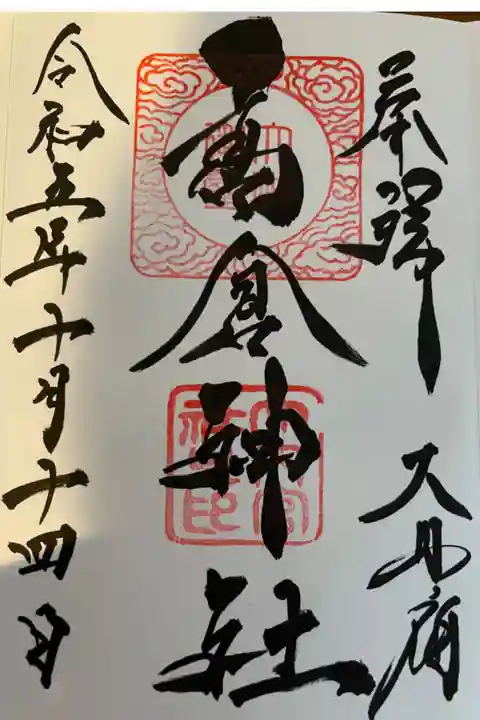 奉拝
高倉神社
令和五年十月十四日